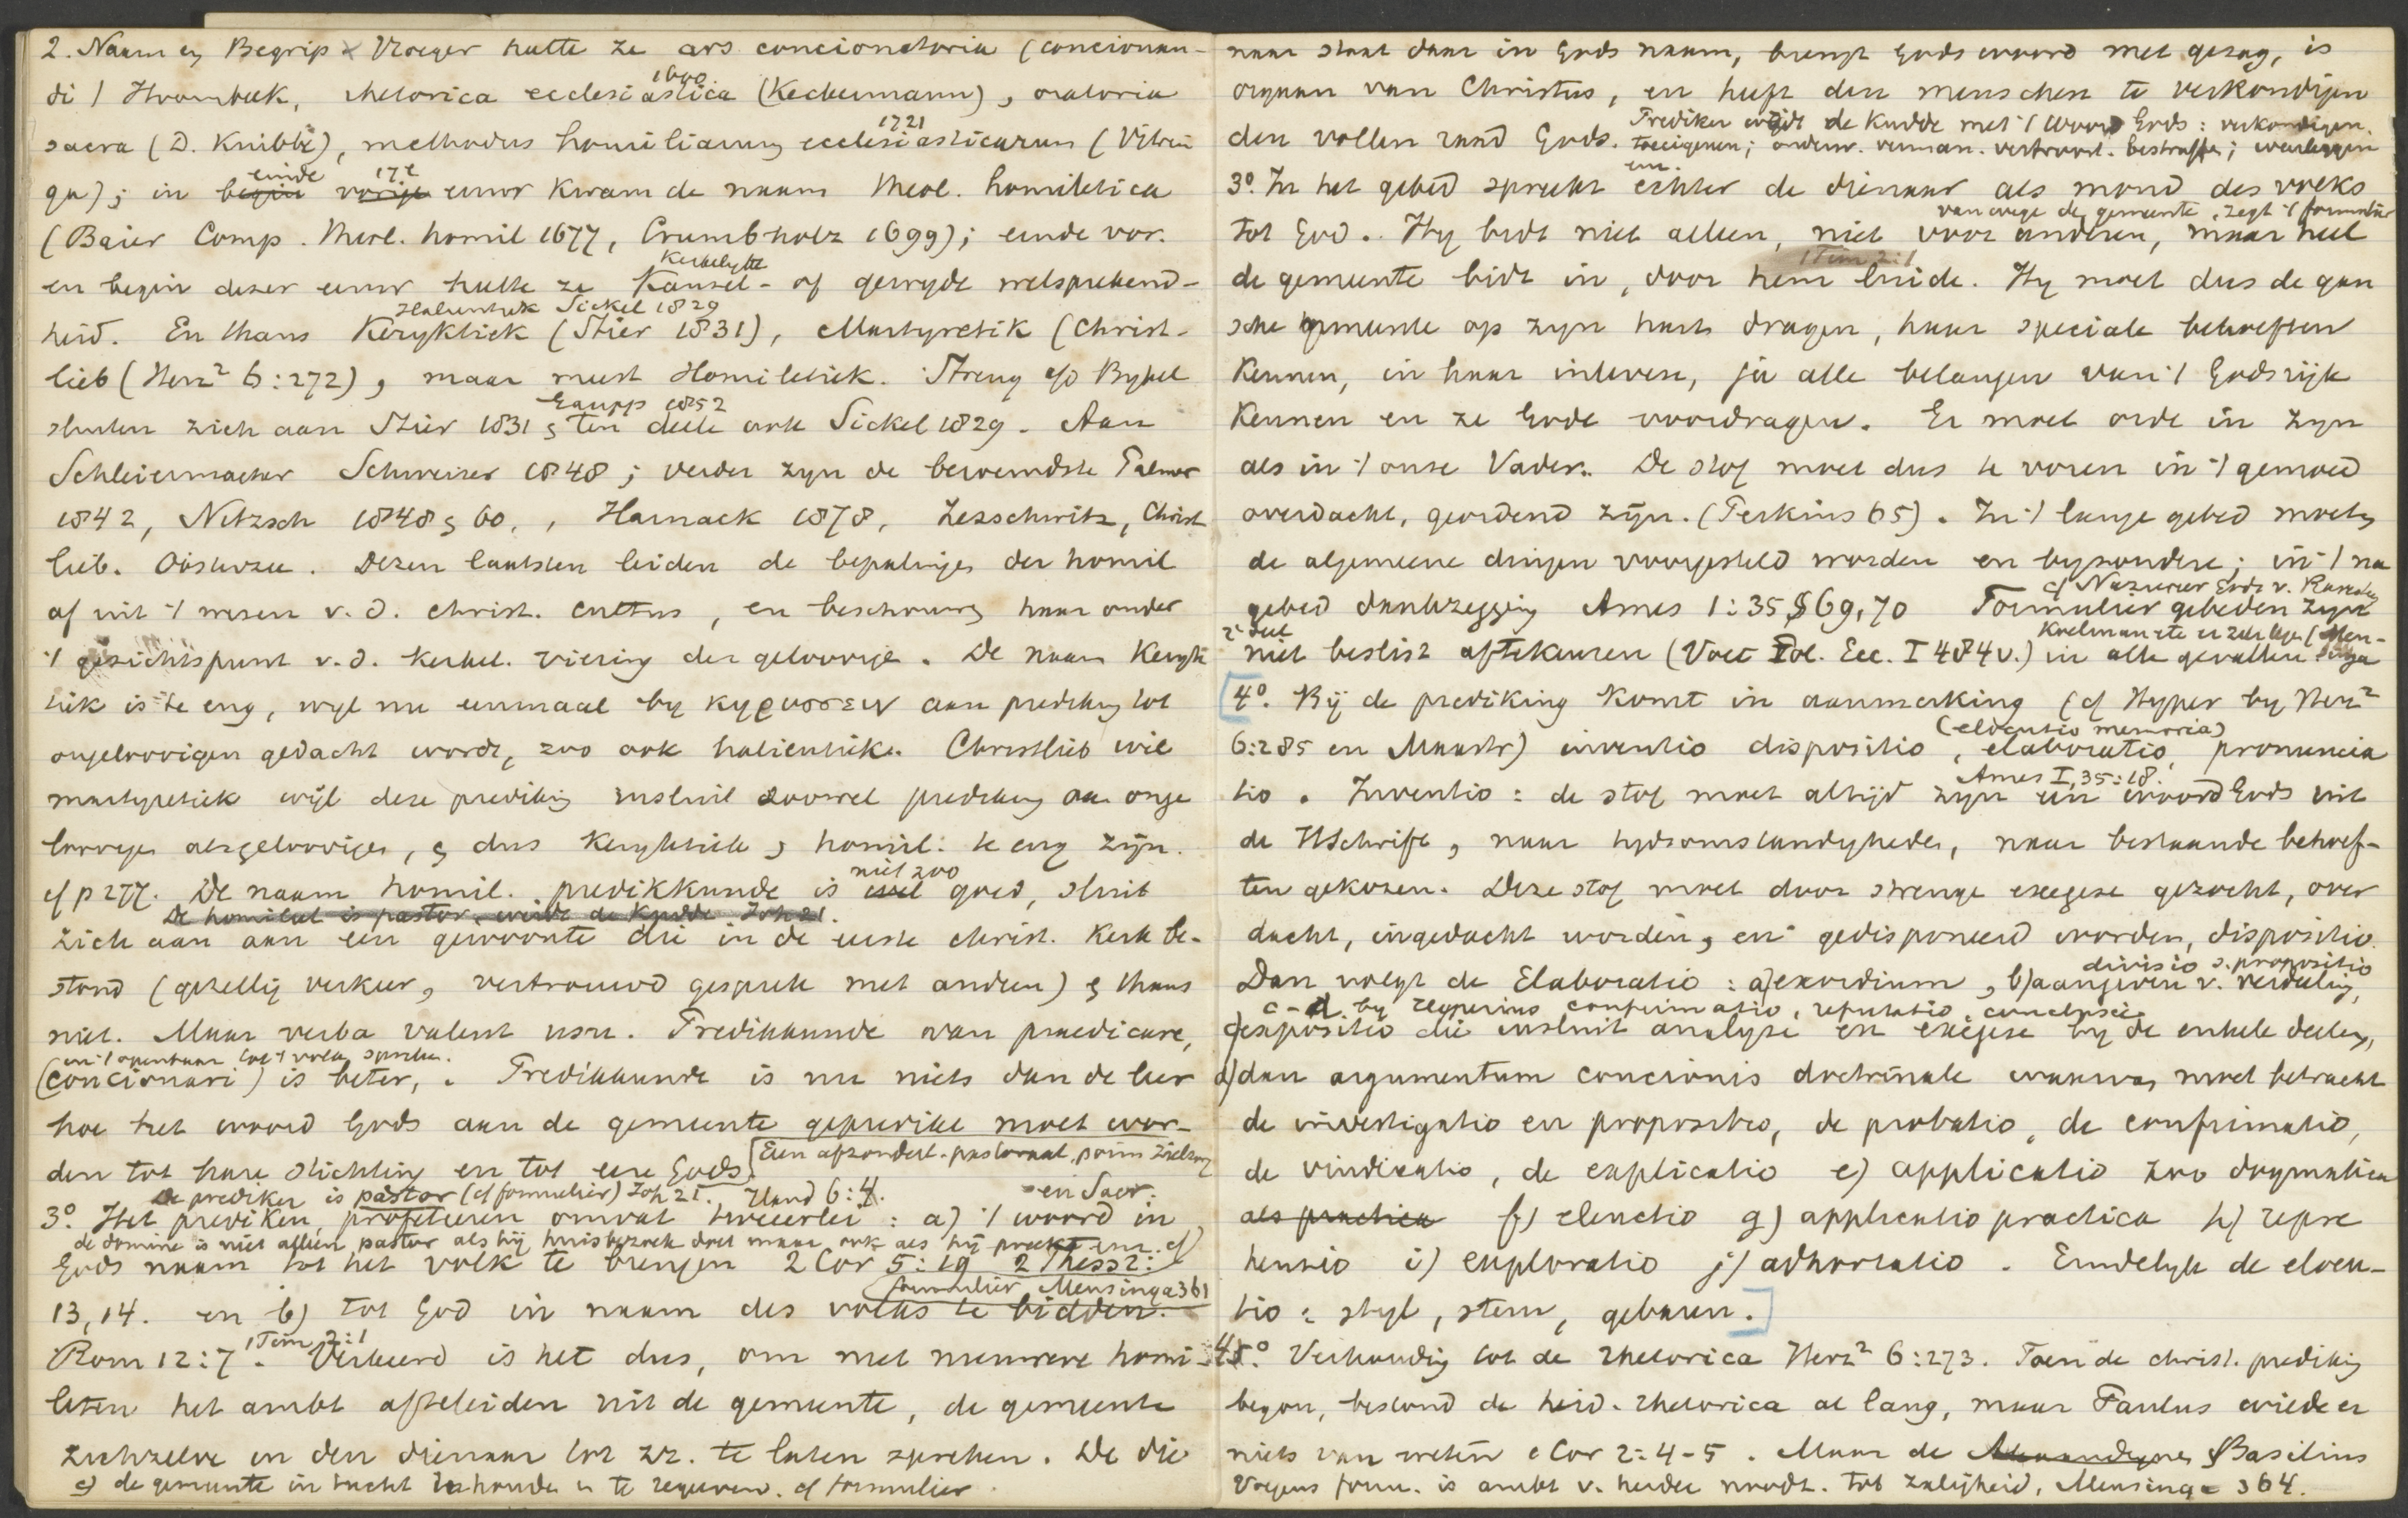 2. Naam en Begrip x Vroeger heette ze ars concionatoria (concionan-
di / Hoornbeek, rhetorica ecclesiastica (Keckermann), oratoria
1600
sacra (D. Knibbe), methodus homiliarum ecclesiasticarum (Vitrin
1721
ga); in einde 17e eeuw kwam de naam theol. homiletica
(Baier Comp. theol. homil 1677, Crumbholz 1699); einde vor.
en begin dezer eeuw heette ze Kansel- of gewyde welsprekend-
Kerkelyke
heid. En thans Keryktiek (Stier 1831), Martyretik (Christ-
Halieutiek Sickel 1829
lieb (Herz² 6:272), maar meest Homiletiek. Streng a/d Bybel
sluten zich aan Stier 1831 en ten deele ook Sickel 1829. Aan
Gaupp 1852
Schleiermacher Schweizer 1848; verder zyn de beroemdste Palmer
1842, Nitzsch 1848 en 60, , Harnack 1878, Zezschwitz, Christ
lieb. Oosterzee. Dezen laatsten leiden de bepalingen der homil
af uit 't wezen v. d. christ. cultus, en beschouwen haar onder
't gezichtspunt v. d. kerkel. viering der geloovige. De naam Keryk
tiek is te eng, wyl nu eenmaal by κηρυσσειν aan prediking tot
ongeloovigen gedacht wordt, zoo ook halieutiek. Christlieb wil
martyretiek wijl deze prediking insluit zoowel prediking aan onge
loovigen als geloovigen, en dus Keryktiek en homil. te eng zijn.
cf p 277. De naam homil. predikkunde is niet zoo goed, sluit
De homileet is pastor, weidt de kudde Joh 21.
zich aan aan een gewoonte die in de eerste christ. Kerk be-
stond (gezellig verkeer, vertrouwd gesprek met anderen) en thans
niet. Maar verba valent usu. Predikkunde van praedicare,
in 't openbaar tot 't volk spreken.
(concionari) is beter, . Predikkunde is nu niets dan de leer
hoe het woord Gods aan de gemeente gepredikt moet wor-
den tot hare stichting en tot eere Gods. [Een afzonderl. pastoraat,
De prediker is pastor (cf formulier) Joh 21. Hand 6:4. en Sacr.
3º. Het prediken, profeteeren omvat tweeerlei: a) 't woord in
de domine is niet alleen pastor als hij huisbezoek doet maar ook als hij preekt enz. cf
Gods naam tot het volk te brengen 2 Cor 5:19 2 Thess 2:
formulier Mensinga 361
13, 14. en b) tot God in naam des volks te bidden.
Rom 12:7. 1 Tim 2:1 Verkeerd is het dus, om met meerere homi-
leten het ambt afteleiden uit de gemeente, de gemeente
zichzelve en den dienaar tot zr. te laten spreken. De die
c) de gemeente in tucht te houden en te regeeren. cf formulier.
naar staat daar in Gods naam, brengt Gods woord met gezag, is
orgaan van Christus, en heeft den menschen te verkondigen
den vollen raad Gods. Prediker weidt de Kudde met 't Woord Gods: verkondigen.
toeeigenen; onderw. verman. vertroost. bestraffen; wederleggen
enz.
3º. In het gebed spreekt echter de dienaar als mond des volks
van wege de gemeente, zegt 't formulier
tot God. Hy bidt niet alleen, niet voor anderen, maar heel
1 Tim 2:1
de gemeente bidt in, door hem luide. Hy moet dus de gan
sche gemeente op zyn hart dragen, haar speciale behoeften
kennen, in haar inleven, ja alle belangen van 't Godsrijk
kennen en ze Gode voordragen. Er moet orde in zyn
als in 't onze Vader. De stof moet dus te voren in 't gemoed
overdacht, geordend zijn. (Perkins 65). In 't lange gebed moeten
de algemeene dingen voorgesteld worden en byzondere; in 't na
gebed dankzegging Ames 1:35 § 69, 70 Formulier gebeden zyn
niet beslist aftekeuren (Voet Pol. Ecc. I 484 v.) in alle gevallen
[4º. Bij de prediking komt in aanmerking (cf Hyper by Herz²
(elocutio memoria)
6:285 en Maastr) inventio dispositio, elaboratio, pronuncia
Ames I, 35:18.
tio. Inventio: de stof moet altijd zyn een woord Gods uit
de HSchrift, naar tydsomstandigheden, naar bestaande behoef-
ten gekozen. Deze stof moet door strenge exegese gezocht, over
dacht, ingedacht worden, en gedisponeerd worden, dispositio.
divisio s. propositio
Dan volgt de Elaboratio: a) exordium, b) aangeven v. verdeeling,
c-d. by Hyperius confirmatio, refutatio, conclusie
c) expositio die insluit analyse en exegese by de enkele deelen,
d) dan argumentum concionis doctrinale waarvan moet betracht
de investigatio en propositio, de probatio, de confirmatio,
de vindicatio, de explicatio e) applicatio zoo dogmatica
als practica f) elenctio g) applicatio practica h) repre
hensio i) exploratio j) adhortatio. Eindelyk de elocu-
tio: styl, stem, gebaren.]
45º. Verhouding tot de rhetorica Herz² 6:273. Toen de christ. prediking
begon, bestond de heid. rhetorica al lang, maar Paulus wilde er
niets van weten 1 Cor 2:4-5. Maar de Basilius
Volgens form. is ambt v. herder noodz. tot zaligheid, Mensinga 364.